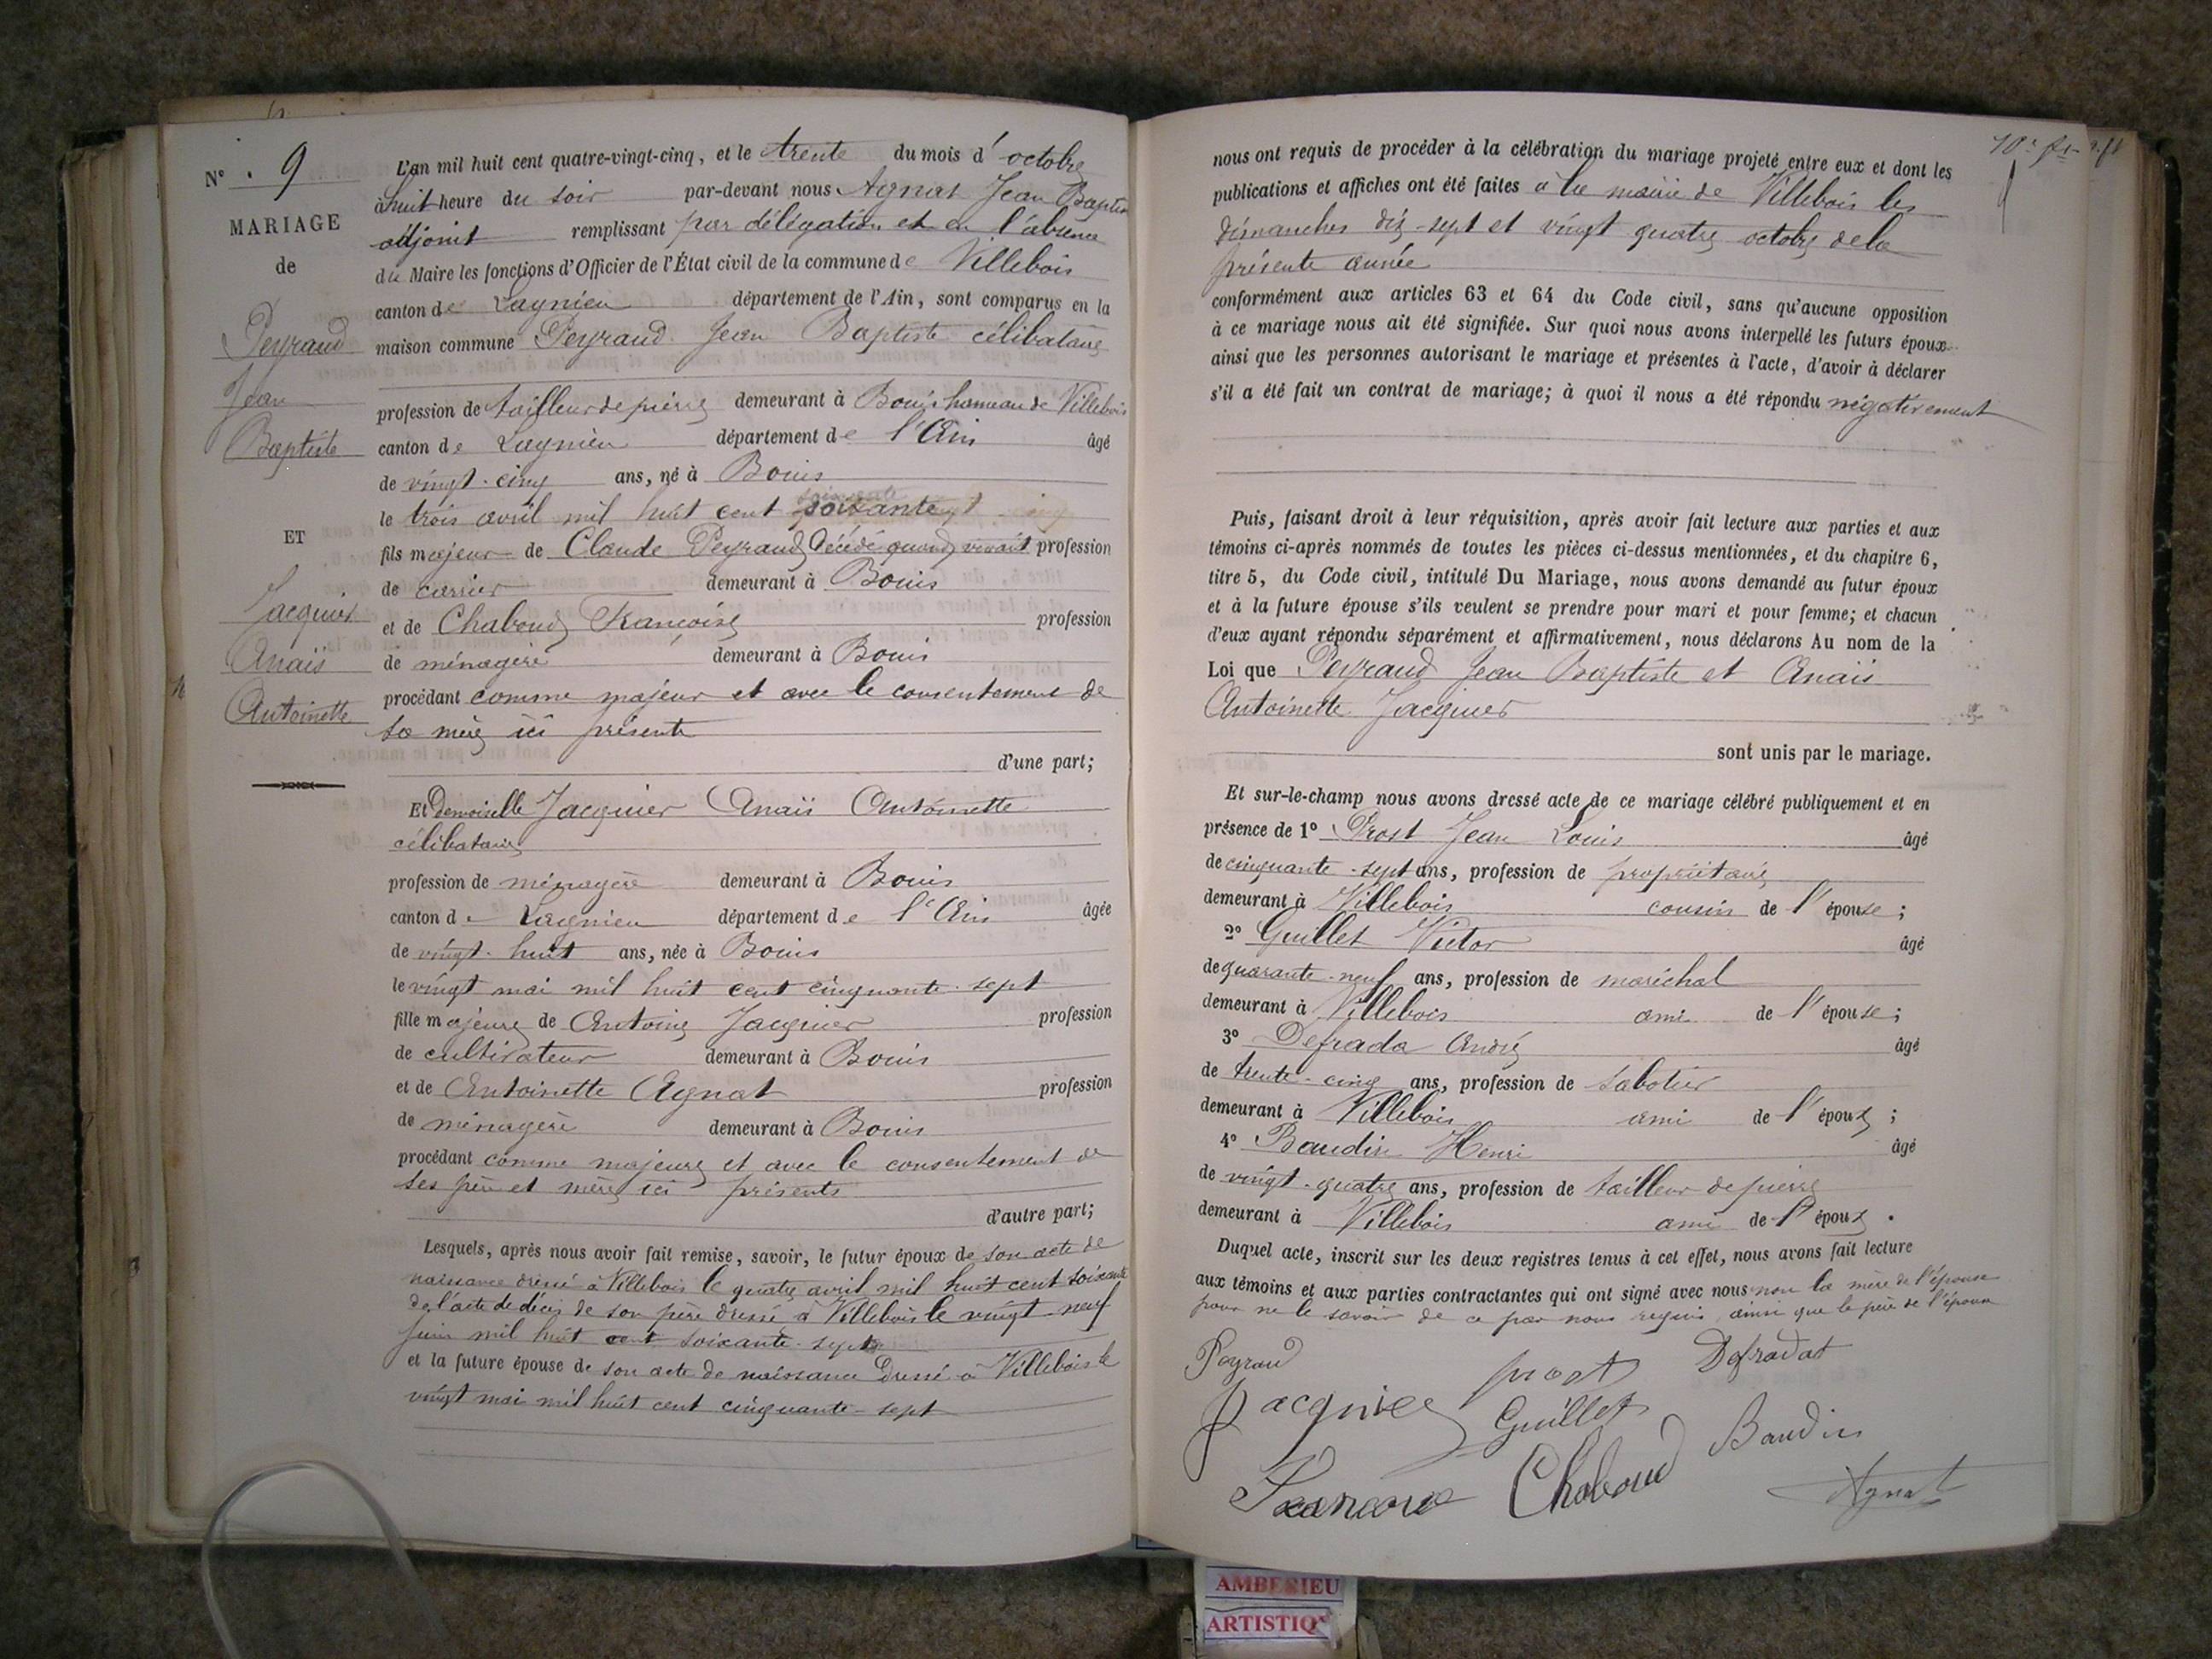 N° 9
MARIAGE
de
Peyraud
Jean
Baptiste
ET
Jacquier
Anaïs
Antoinette
L'an mil huit cent quatre-vingt-cinq, et le trente du mois d'octobre
à huit heure du soir par-devant nous Agnat Jean Baptiste
adjoint remplissant par délégation et en l'absence
du Maire les fonctions d'Officier de l'État civil de la commune de Villebois
canton de Lagnieu département de l'Ain, sont comparus en la
maison commune Peyraud Jean Baptiste célibataire
profession de tailleur de pierre demeurant à Bouis hameau de Villebois
canton de Lagnieu département de l'Ain âgé
de vingt-cinq ans, né à Bouis
le trois avril mil huit cent soixante
fils majeur de Claude Peyraud décédé quand vivait profession
de carrier demeurant à Bouis
et de Chaboud Françoise profession
de ménagère demeurant à Bouis
procédant comme majeur et avec le consentement de
sa mère ici présente
d'une part;
Et Demoiselle Jacquier Anaïs Antoinette
célibataire
profession de ménagère demeurant à Bouis
canton de Lagnieu département de l'Ain âgée
de vingt-huit ans, née à Bouis
le vingt mai mil huit cent cinquante-sept
fille majeure de Antoine Jacquier profession
de cultivateur demeurant à Bouis
et de Antoinette Agnat profession
de ménagère demeurant à Bouis
procédant comme majeure et avec le consentement de
ses père et mère ici présents
d'autre part;
Lesquels, après nous avoir fait remise, savoir, le futur époux de son acte de
naissance dressé à Villebois le quatre avril mil huit cent soixante
de l'acte de décès de son père dressé à Villebois le vingt-neuf
juin mil huit cent soixante-sept
et la future épouse de son acte de naissance dressé à Villebois le
vingt mai mil huit cent cinquante-sept
nous ont requis de procéder à la célébration du mariage projeté entre eux et dont les
publications et affiches ont été faites à la mairie de Villebois les
dimanches dix-sept et vingt quatre octobre de la
présente année
conformément aux articles 63 et 64 du Code civil, sans qu'aucune opposition
à ce mariage nous ait été signifiée. Sur quoi nous avons interpellé les futurs époux
ainsi que les personnes autorisant le mariage et présentes à l'acte, d'avoir à déclarer
s'il a été fait un contrat de mariage; à quoi il nous a été répondu négativement
Puis, faisant droit à leur réquisition, après avoir fait lecture aux parties et aux
témoins ci-après nommés de toutes les pièces ci-dessus mentionnées, et du chapitre 6,
titre 5, du Code civil, intitulé Du Mariage, nous avons demandé au futur époux
et à la future épouse s'ils veulent se prendre pour mari et pour femme; et chacun
d'eux ayant répondu séparément et affirmativement, nous déclarons Au nom de la
Loi que Peyraud Jean Baptiste et Anaïs
Antoinette Jacquier
sont unis par le mariage.
Et sur-le-champ nous avons dressé acte de ce mariage célébré publiquement et en
présence de 1° Prost Jean Louis âgé
de cinquante-sept ans, profession de propriétaire
demeurant à Villebois cousin de l'épouse;
2° Guillet Victor âgé
de quarante-neuf ans, profession de maréchal
demeurant à Villebois ami de l'épouse;
3° Defrada André âgé
de trente-cinq ans, profession de sabotier
demeurant à Villebois ami de l'époux;
4° Baudin Henri âgé
de vingt-quatre ans, profession de tailleur de pierre
demeurant à Villebois ami de l'époux.
Duquel acte, inscrit sur les deux registres tenus à cet effet, nous avons fait lecture
aux témoins et aux parties contractantes qui ont signé avec nous non la mère de l'épouse
pour ne le savoir de ce par nous requis ainsi que le père de l'épouse
Peyraud prost Defradat
Jacquier Guillet Baudin
Francoise Chaboud Agnat
AMBERIEU
ARTISTIQ